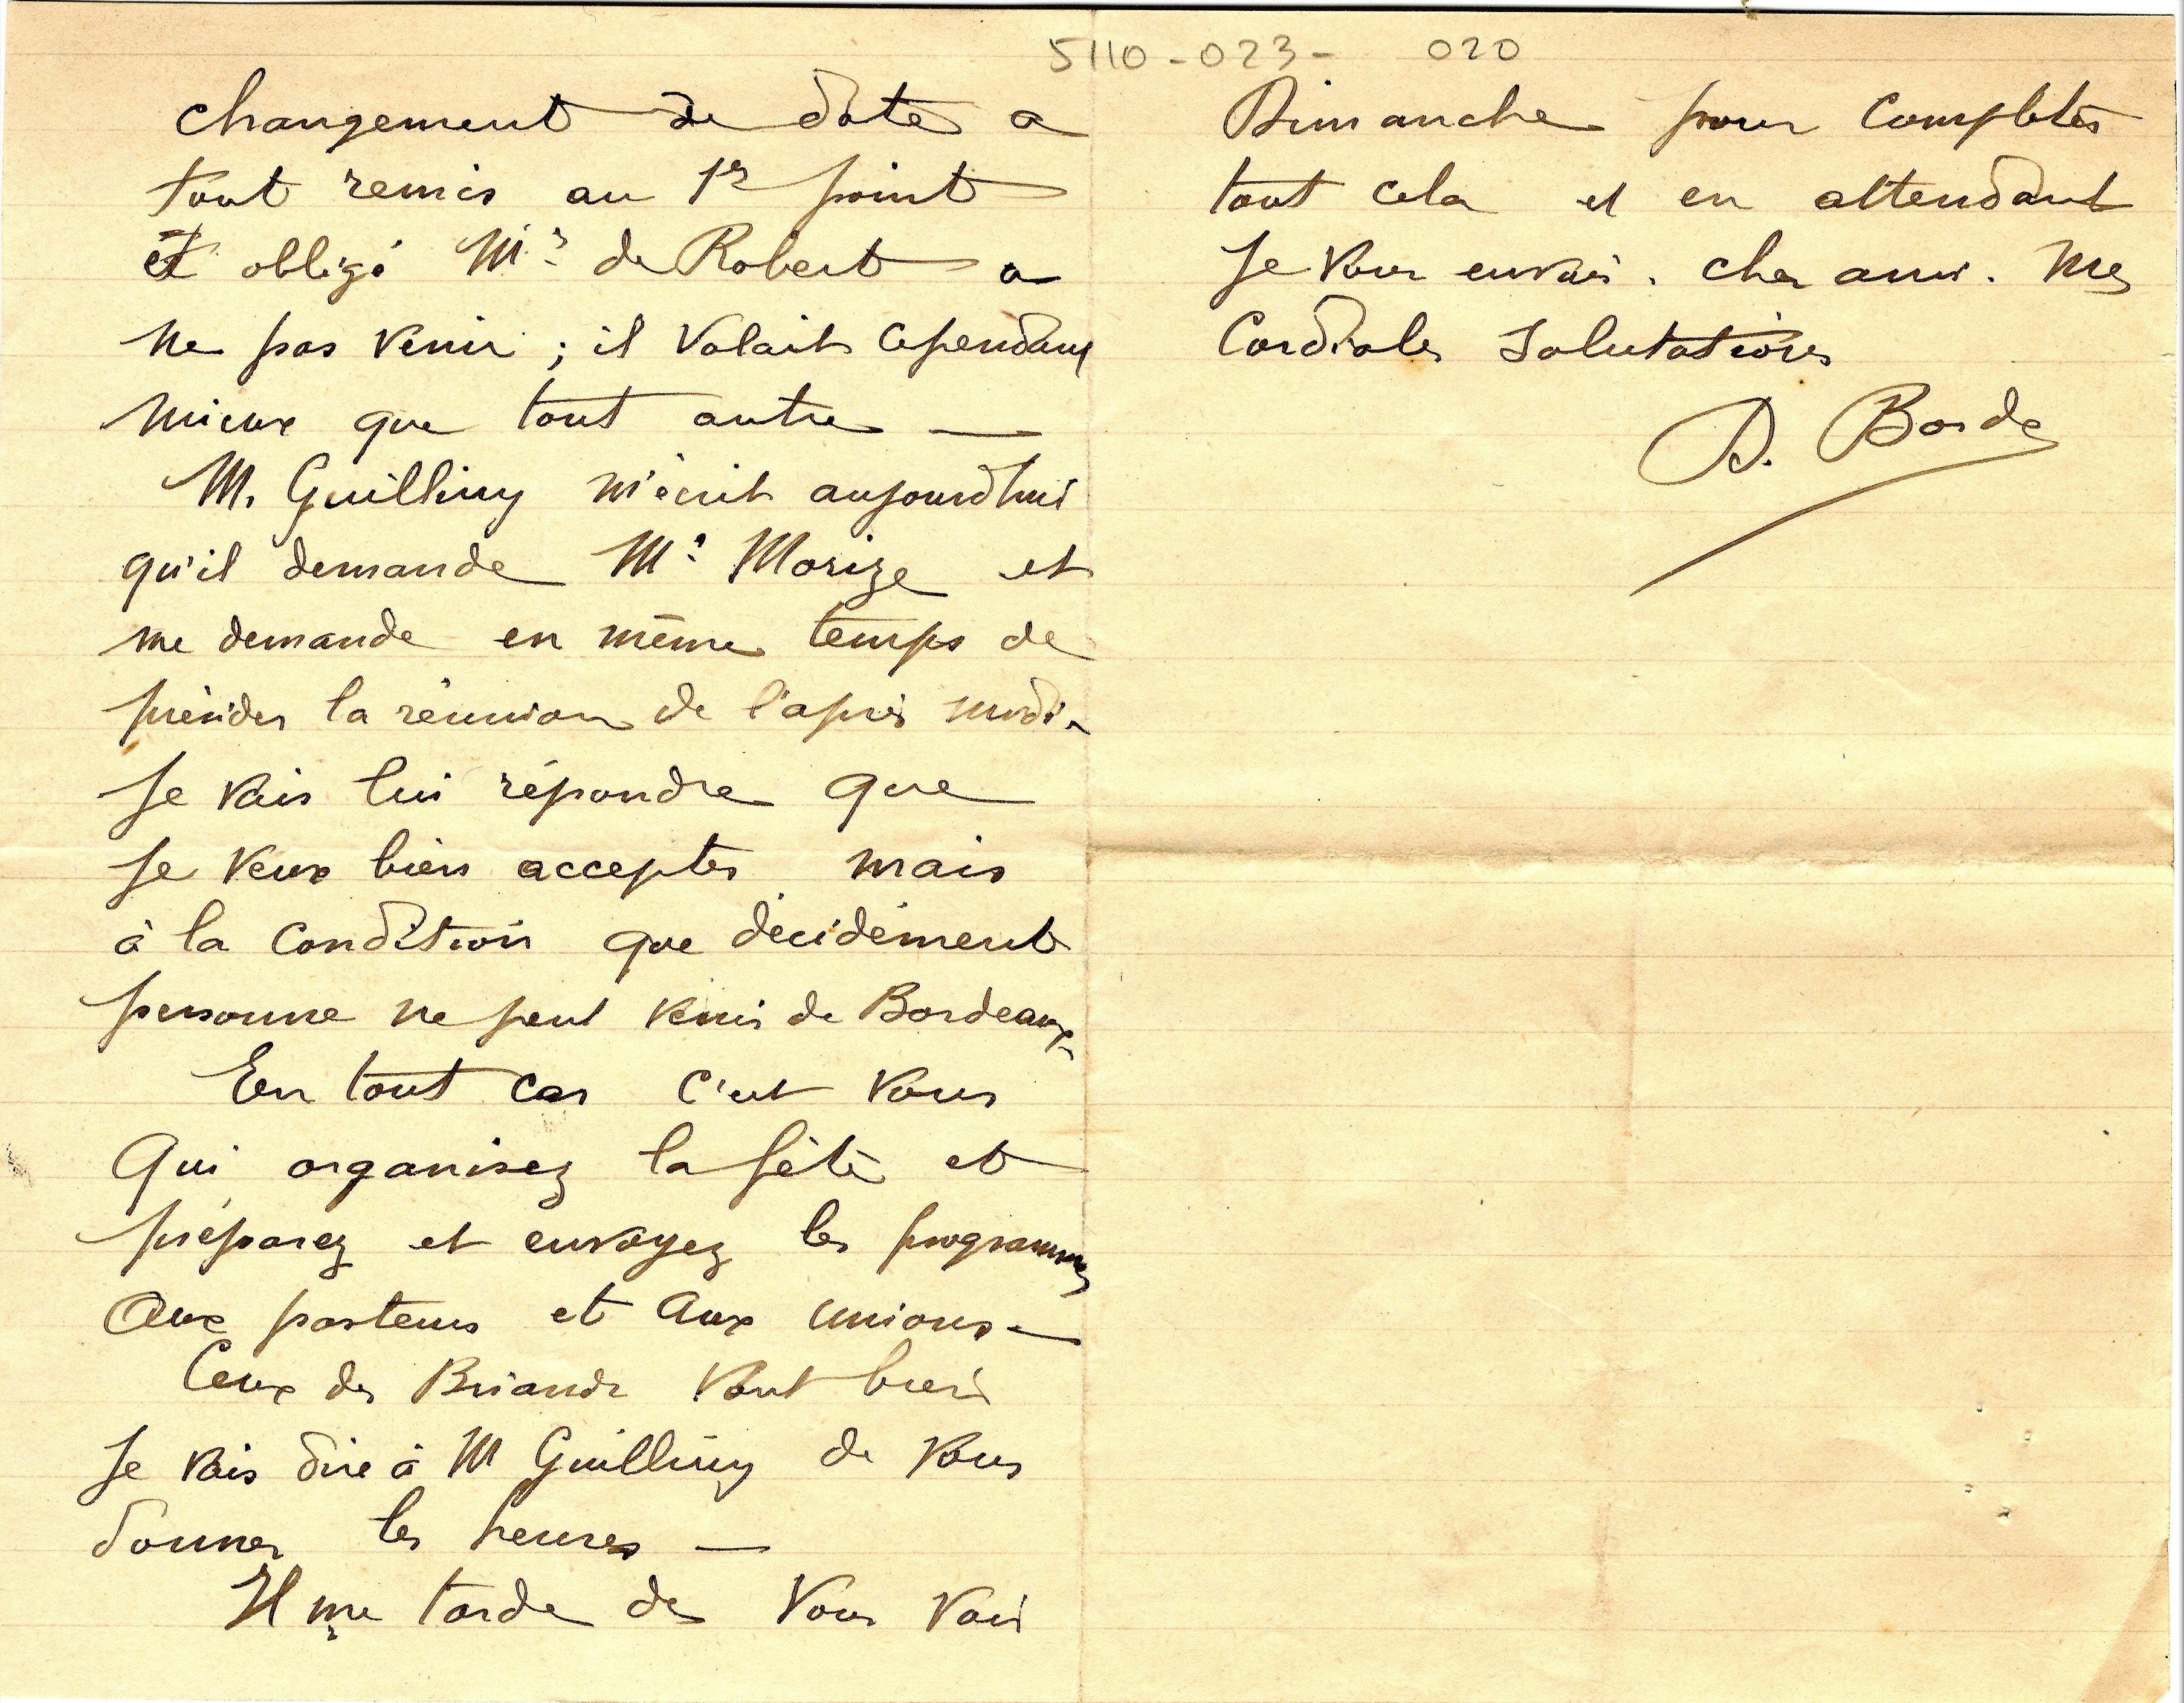 5110-023- 020
changement de date a
tout remis au 1er point
et obligé Mr de Robert a
ne pas venir ; il valait cependant
mieux que tout autre —
M. Guilliny m'écrit aujourd'hui
qu'il demande Mr Morize et
me demande en même temps de
présider la réunion de l'après midi -
Je vais lui répondre que
je veux bien accepter mais
à la condition que décidément
personne ne peut venir de Bordeaux -
En tout cas c'est vous
qui organisez la fête et
préparez et envoyez les programmes
aux pasteurs et aux unions —
Ceux des Briands vont bien
Je vais dire à M Guilliny de vous
donner les heures —
Il me tarde de vous voir
Dimanche pour compléter
tout cela et en attendant
je vous envoie. cher ami. mes
Cordiales salutations
D. Borde